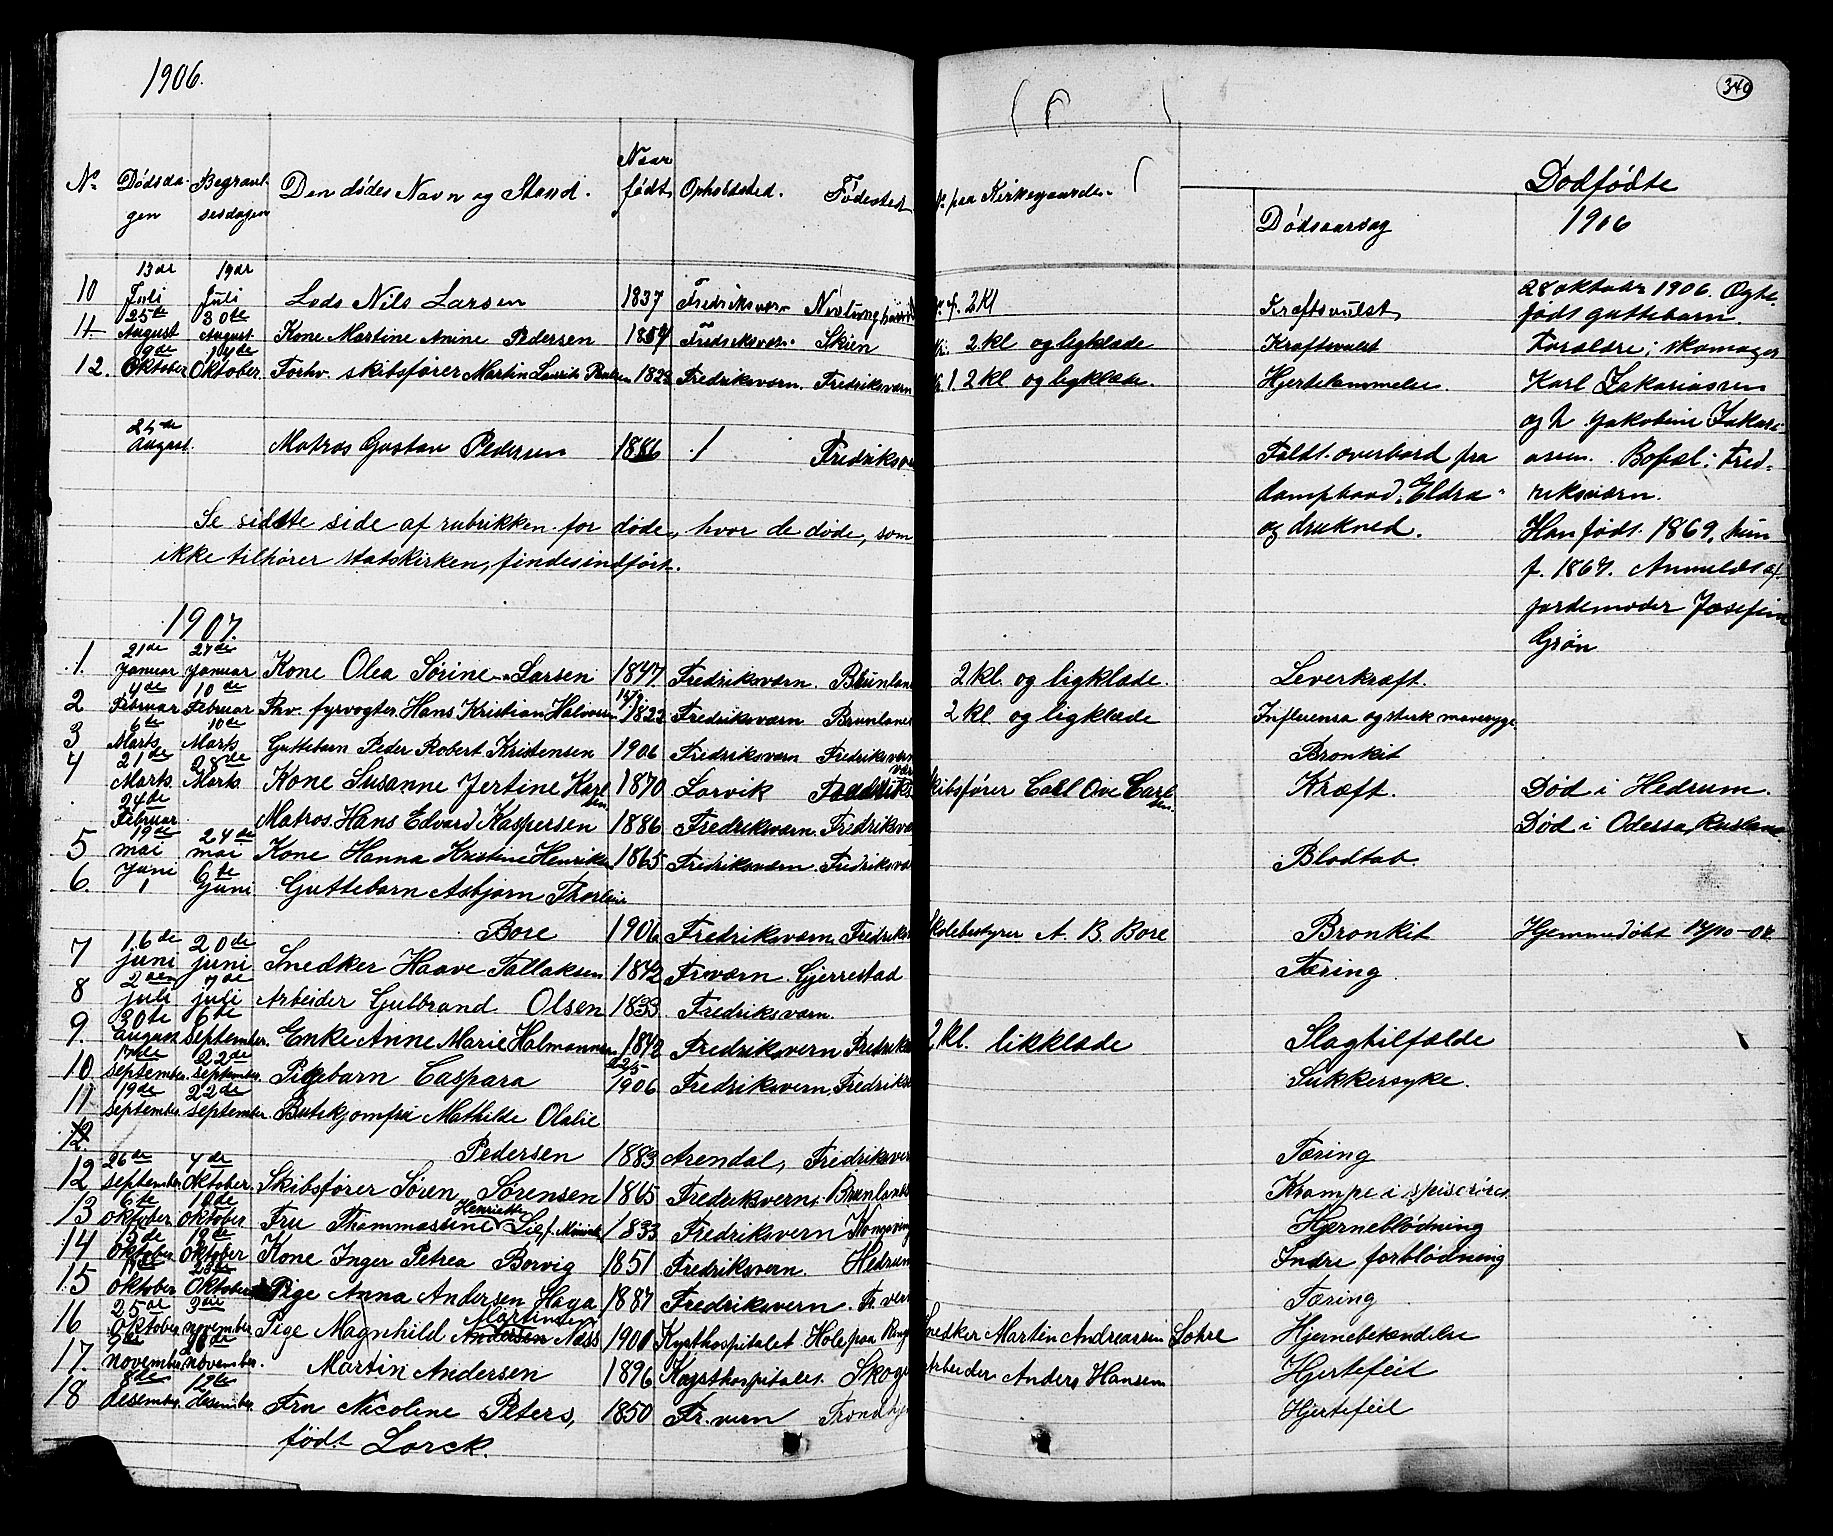 1906.
340
No Dødsda- gen Begravel- sesdagen Den dødes Navn og Stand. Naar født Opholdssted. Fødested No paa Kirkegaarden Dødsaarsag Dødfødte 1906
10 13de Juli 19de Juli Lods Nils Larsen 1837 Fredriksværn 2 Kl Kræftsvulst
11 25de August 30te August Kone Martine Anine Pedersen Fredriksværn Skien 2 kl og ligklæde Kræftsvulst
12. 9de Oktober 14de Oktober Forhv. skibsfører Martin Fredriksværn. Fredriksværn 1. 2 kl og ligklæde. Hjertelammelse.
28 oktober 1906.
født guttebarn.
Forældre: skomager
Karl Zakariassen
og h Jakobine Zakari-
assen. Bopæl: Fred-
riksværn.
Han født 1869, hun
f. 1867. Anmeldt af
jordemoder Josefine
Grøn
25de August Matros Gustav Pedersen 1886 Fredriksv Faldt overbord fra
dampbaad "Eldra"
og druknet.
Se sidste side af rubrikken for døde, hvor de døde, som
ikke tilhører statskirken, findes indført.
1907.
1. 21de Januar 27de Januar Kone Olea Sørine Larsen 1847 Fredriksværn. Brunlan 2 kl. og ligklæde. Leverkræft.
2 4de Februar 10de Februar Fhv. fyrvogter Hans Kristian Halvorsen 1822 Fredriksværn Brunlanes 2 kl. og ligklæde Influensa og sterk mavesyge
3 6te Marts 10de Marts Guttebarn Peder Robert Kristensen 1906 Fredriksværn Fredriksværn Bronkit
4 21de Marts 28de Marts Kone Susanne Jertine Karl sen 1870 Larvik Fredriks værn Skibsfører Carl Ove Carl sen. Kræft. Død i Hedrum.
24de Februar Matros Hans Edvard Kaspersen 1886 Fredriksværn. Fredriksvæ Død i Odessa, Rusland
5 19de mai 24de mai Kone Hanna Kristine Henriksen 1865 Fredriksværn Fredriksvæ Blodtab
6. 1 Juni 6te Juni Guttebarn Asbjørn
Bore 1906 Fredriksværn Fredriks Skolebestyrer A. B. Bore Bronkit Hjemmedøbt
7 16de juni 20de juni Snedker Haave Tallaksen 1842 Fr.værn Gjerrestad Tæring
8 2den juli 7de juli Arbeider Gulbrand Olsen 1833 Fredriksværn.
9. 30te August 6te September. Enke Anne Marie 1842 Fredriksvern Fredriks 2 kl. likklæde Slagtilfælde
10 17de September. 22de September. Pigebarn Caspara 22/5 1906 Fredriksvern, Fredriks Sukkersyke.
11 19de September 22de September. Butikjomfru Mathilde Olalie
12
Pedersen 1883 Arendal, Fredriksver Tæring
12 26de September 4de Oktober. Skibsfører Søren Sørensen 1865 Fredriksvern. Brunlanes Krampe i spiserøret
13 6te Oktober 10de Oktober Fru Thommassine Henriette 1833 Fredriksvern Kongsving Hjerneblødning
14 13de Oktober 18de Oktober Kone Inger Petrea Borvig 1851 Fredriksvern. Hedrum Indre forblødning
15 Oktober Oktober Pige Anna Andersen Haga 1887 Fredriksvern. Fr. vern Tæring
16 25de Oktober 3die november Pige Magnhild Andersen Martinsen Næss 1901 Kysthospitalet Hole paa Ring Snedker Martin Andreassen Sohre Hjernebetændelse
17. november november. Martin Andersen 1896 Kysthospitalet. Skoger Arbeider Anders Hansen Hjertefeil
18 8de desember. 12te desember Fru Nicoline Peters, 1850 Fr. vern Trondhjem Hjertefeil
født Lorck.